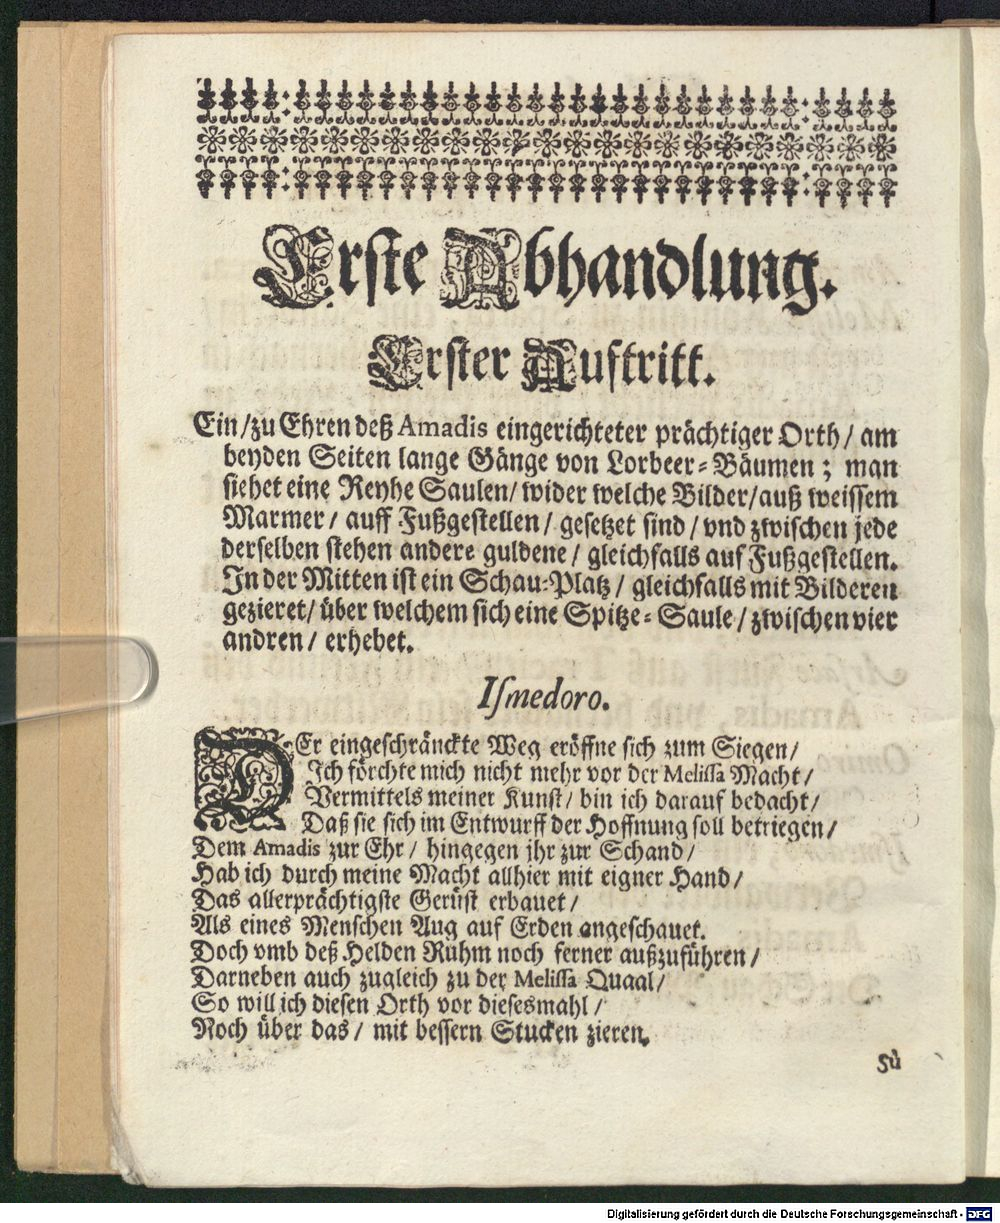 Erste Abhandlung.
Erster Auftritt.
Ein/zu Ehren deß Amadis eingerichteter prächtiger Orth/ am
beyden Seiten lange Gänge von Lorbeer-Bäumen; man
siehet eine Reyhe Saulen/ wider welche Bilder/auß weissem
Marmer/ auff Fußgestellen/ gesetzet sind/ vnd zwischen jede
derselben stehen andere guldene/ gleichfalls auf Fußgestellen.
In der Mitten ist ein Schau-Platz/ gleichfalls mit Bilderen
gezieret/ über welchem sich eine Spitze-Saule/ zwischen vier
andren/ erhebet.
Iſmedoro.
DEr eingeschränckte Weg eröffne sich zum Siegen/
Ich förchte mich nicht mehr vor der Melissa Macht/
Vermittels meiner Kunst/ bin ich darauf bedacht/
Daß sie sich im Entwurff der Hoffnung soll betriegen/
Dem Amadis zur Ehr/ hingegen jhr zur Schand/
Hab ich durch meine Macht allhier mit eigner Hand/
Das allerprächtigste Gerüst erbauet/
Als eines Menschen Aug auf Erden angeschauet.
Doch vmb deß Helden Ruhm noch ferner außzuführen/
Darneben auch zugleich zu der Melissa Quaal/
So will ich diesen Orth vor diesesmahl/
Noch über das/ mit bessern Stucken zieren.
Sù
Digitalisierung gefördert durch die Deutsche Forschungsgemeinschaft - DFG